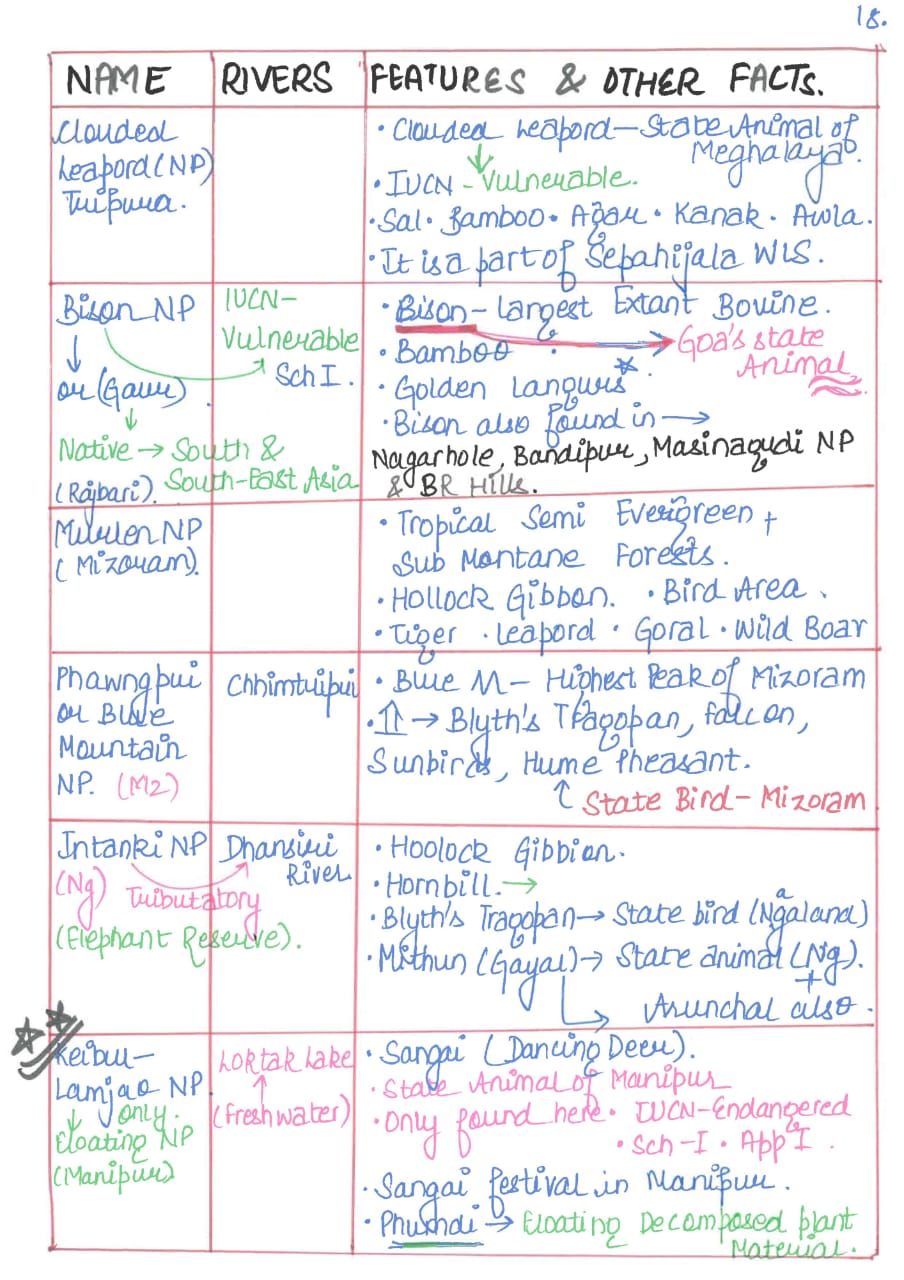 18.
NAME RIVERS FEATURES & OTHER FACTS.
Clouded
Leapord (NP)
Tripura.
• Clouded Leapord — State Animal of
Meghalaya.
• IUCN - Vulnerable.
• Sal • Bamboo • Agar • Kanak • Awla.
• It is a part of Sepahijala WLS.
Bison NP
or (Gaur)
Native → South &
South-East Asia
(Rajbari).
IUCN-
Vulnerable
Sch I.
• Bison - Largest Extant Bovine.
Goa's state
Animal
• Bamboo
• Golden Langurs*.
• Bison also found in →
Nagarhole, Bandipur, Masinagudi NP
& BR Hills.
Murlen NP
(Mizoram).
• Tropical Semi Evergreen +
Sub Montane Forests.
• Hollock Gibbon. • Bird Area.
• Tiger • Leapord • Goral • Wild Boar
Phawngpui
or Blue
Mountain
NP. (MZ)
Chhimtuipui
• Blue M - Highest Peak of Mizoram
• ⇑ → Blyth's Tragopan, falcon,
Sunbirds, Hume Pheasant.
↑ State Bird - Mizoram
Intanki NP
(Ng)
Tributatory
(Elephant Reserve).
Dhansiri
River
• Hoolock Gibbion.
• Hornbill. →
• Blyth's Tragopan → State bird (Ngaland)
a
• Mithun (Gayal) → State animal (Ng).
+
Arunchal also.
Keibul-
Lamjao NP
↓ only.
Floating NP
(Manipur)
Loktak Lake
↑
(freshwater)
• Sangai (Dancing Deer).
• State Animal of Manipur
• Only found here • IUCN-Endangered
• Sch-I • App I.
• Sangai festival in Manipur.
• Phumdi → Floating Decomposed plant
Material.